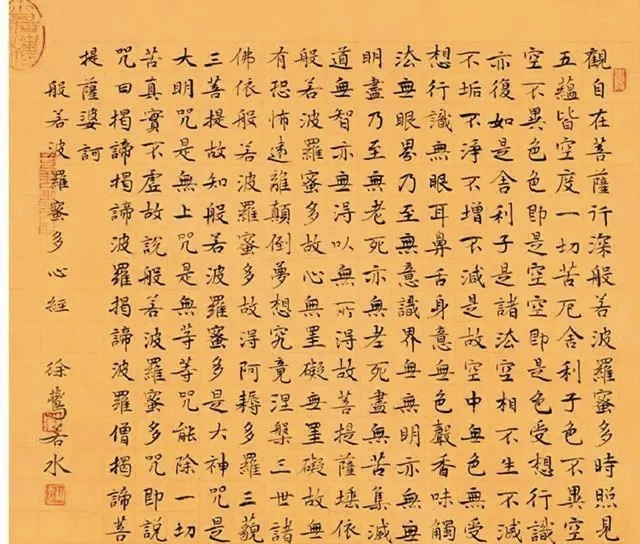 觀自在菩薩行深般若波羅蜜多時照見
五蘊皆空度一切苦厄舍利子色不異空
空不異色色即是空空即是色受想行識
亦復如是舍利子是諸法空相不生不滅
不垢不淨不增不減是故空中無色無受
想行識無眼耳鼻舌身意無色聲香味觸
法無眼界乃至無意識界無無明亦無無
明盡乃至無老死亦無老死盡無苦集滅
道無智亦無得以無所得故菩提薩埵依
般若波羅蜜多故心無罣礙無罣礙故無
有恐怖遠離顛倒夢想究竟涅槃三世諸
佛依般若波羅蜜多故得阿耨多羅三藐
三菩提故知般若波羅蜜多是大神咒是
大明咒是無上咒是無等等咒能除一切
苦真實不虛故說般若波羅蜜多咒即說
咒曰揭諦揭諦波羅揭諦波羅僧揭諦菩
提薩婆訶
般若波羅蜜多心經 徐 若水